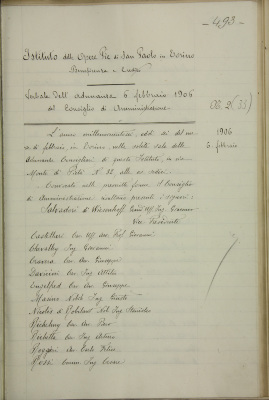 - 493 -
Istituto delle Opere Pie di San Paolo in Torino
Beneficenza e Credito
Verbale dell' adunanza 6 febbraio 1906
del Consiglio di Amministrazione
Ob. 2 (33)
1906
6 febbraio
L'anno millenovecentosei addì sei del me-
se di febbraio in Torino nella solita sala delle
Adunanze Consigliari di questo Istituto, in via
Monte di Pietà N. 32, alle ore
Convocato nelle prescritte forme il Consiglio
di Amministrazione risultano presenti i signori:
Salvadori di Wiesenhoff Giacomo
Vice Presidente
Castellari Cav. Uff. Avv. Prof. Giovanni
Chevalley Ing. Giovanni
Cav. Avv. Giuseppe
Cav. Ing. Attilio
Engelfred Cav. Avv. Giuseppe
Nobile Ing.
Nicolis di Robilant Nob. Ing. Stanislao
Cav. Avv. Piero
Cav. Ing.
Conte Felice
Rossi Comm. Ing. Cesare